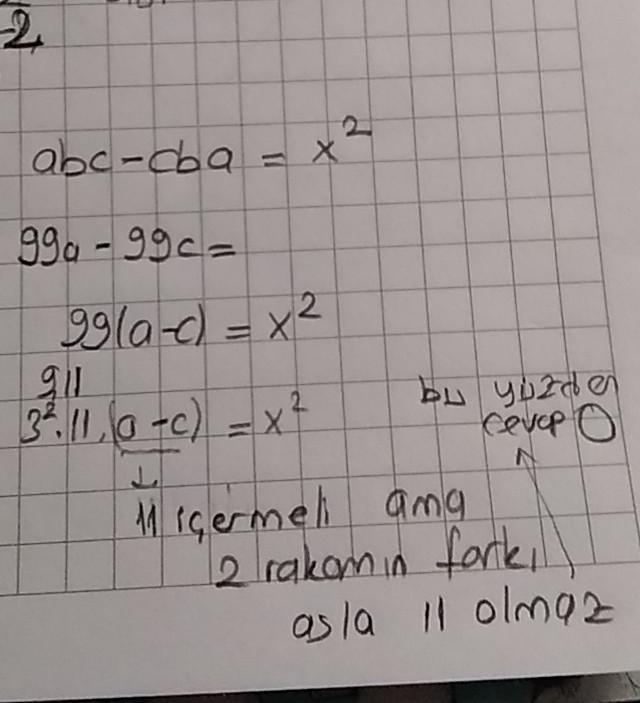 2
abc - cba = x²
99a - 99c =
99(a-c) = x²
9 11
3².11.(a-c) = x²
bu yüzden
cevap 0
↓
11 içermeli ama
2 rakamın farkı
asla 11 olmaz